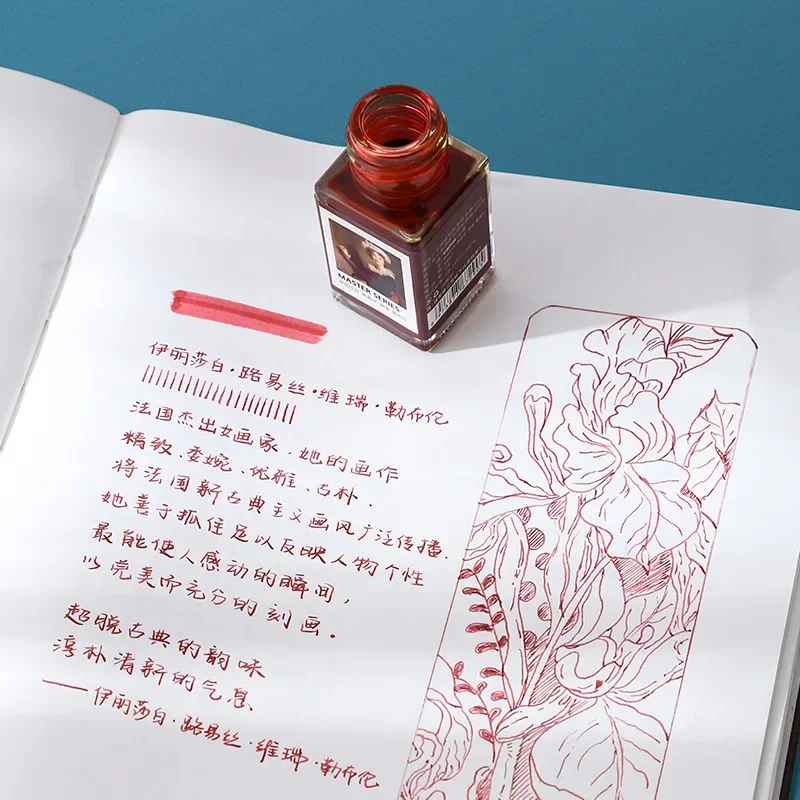 MASTER SERIES
伊丽莎白·路易丝·维瑞·勒布伦
法国杰出女画家，她的画作
精致、委婉、优雅、古朴.
将法国新古典主义画风广泛传播.
她善于抓住足以反映人物个性
最能使人感动的瞬间，
以完美而充分的刻画。
超脱古典的韵味
淳朴清新的气息、
——伊丽莎白·路易丝·维瑞·勒布伦